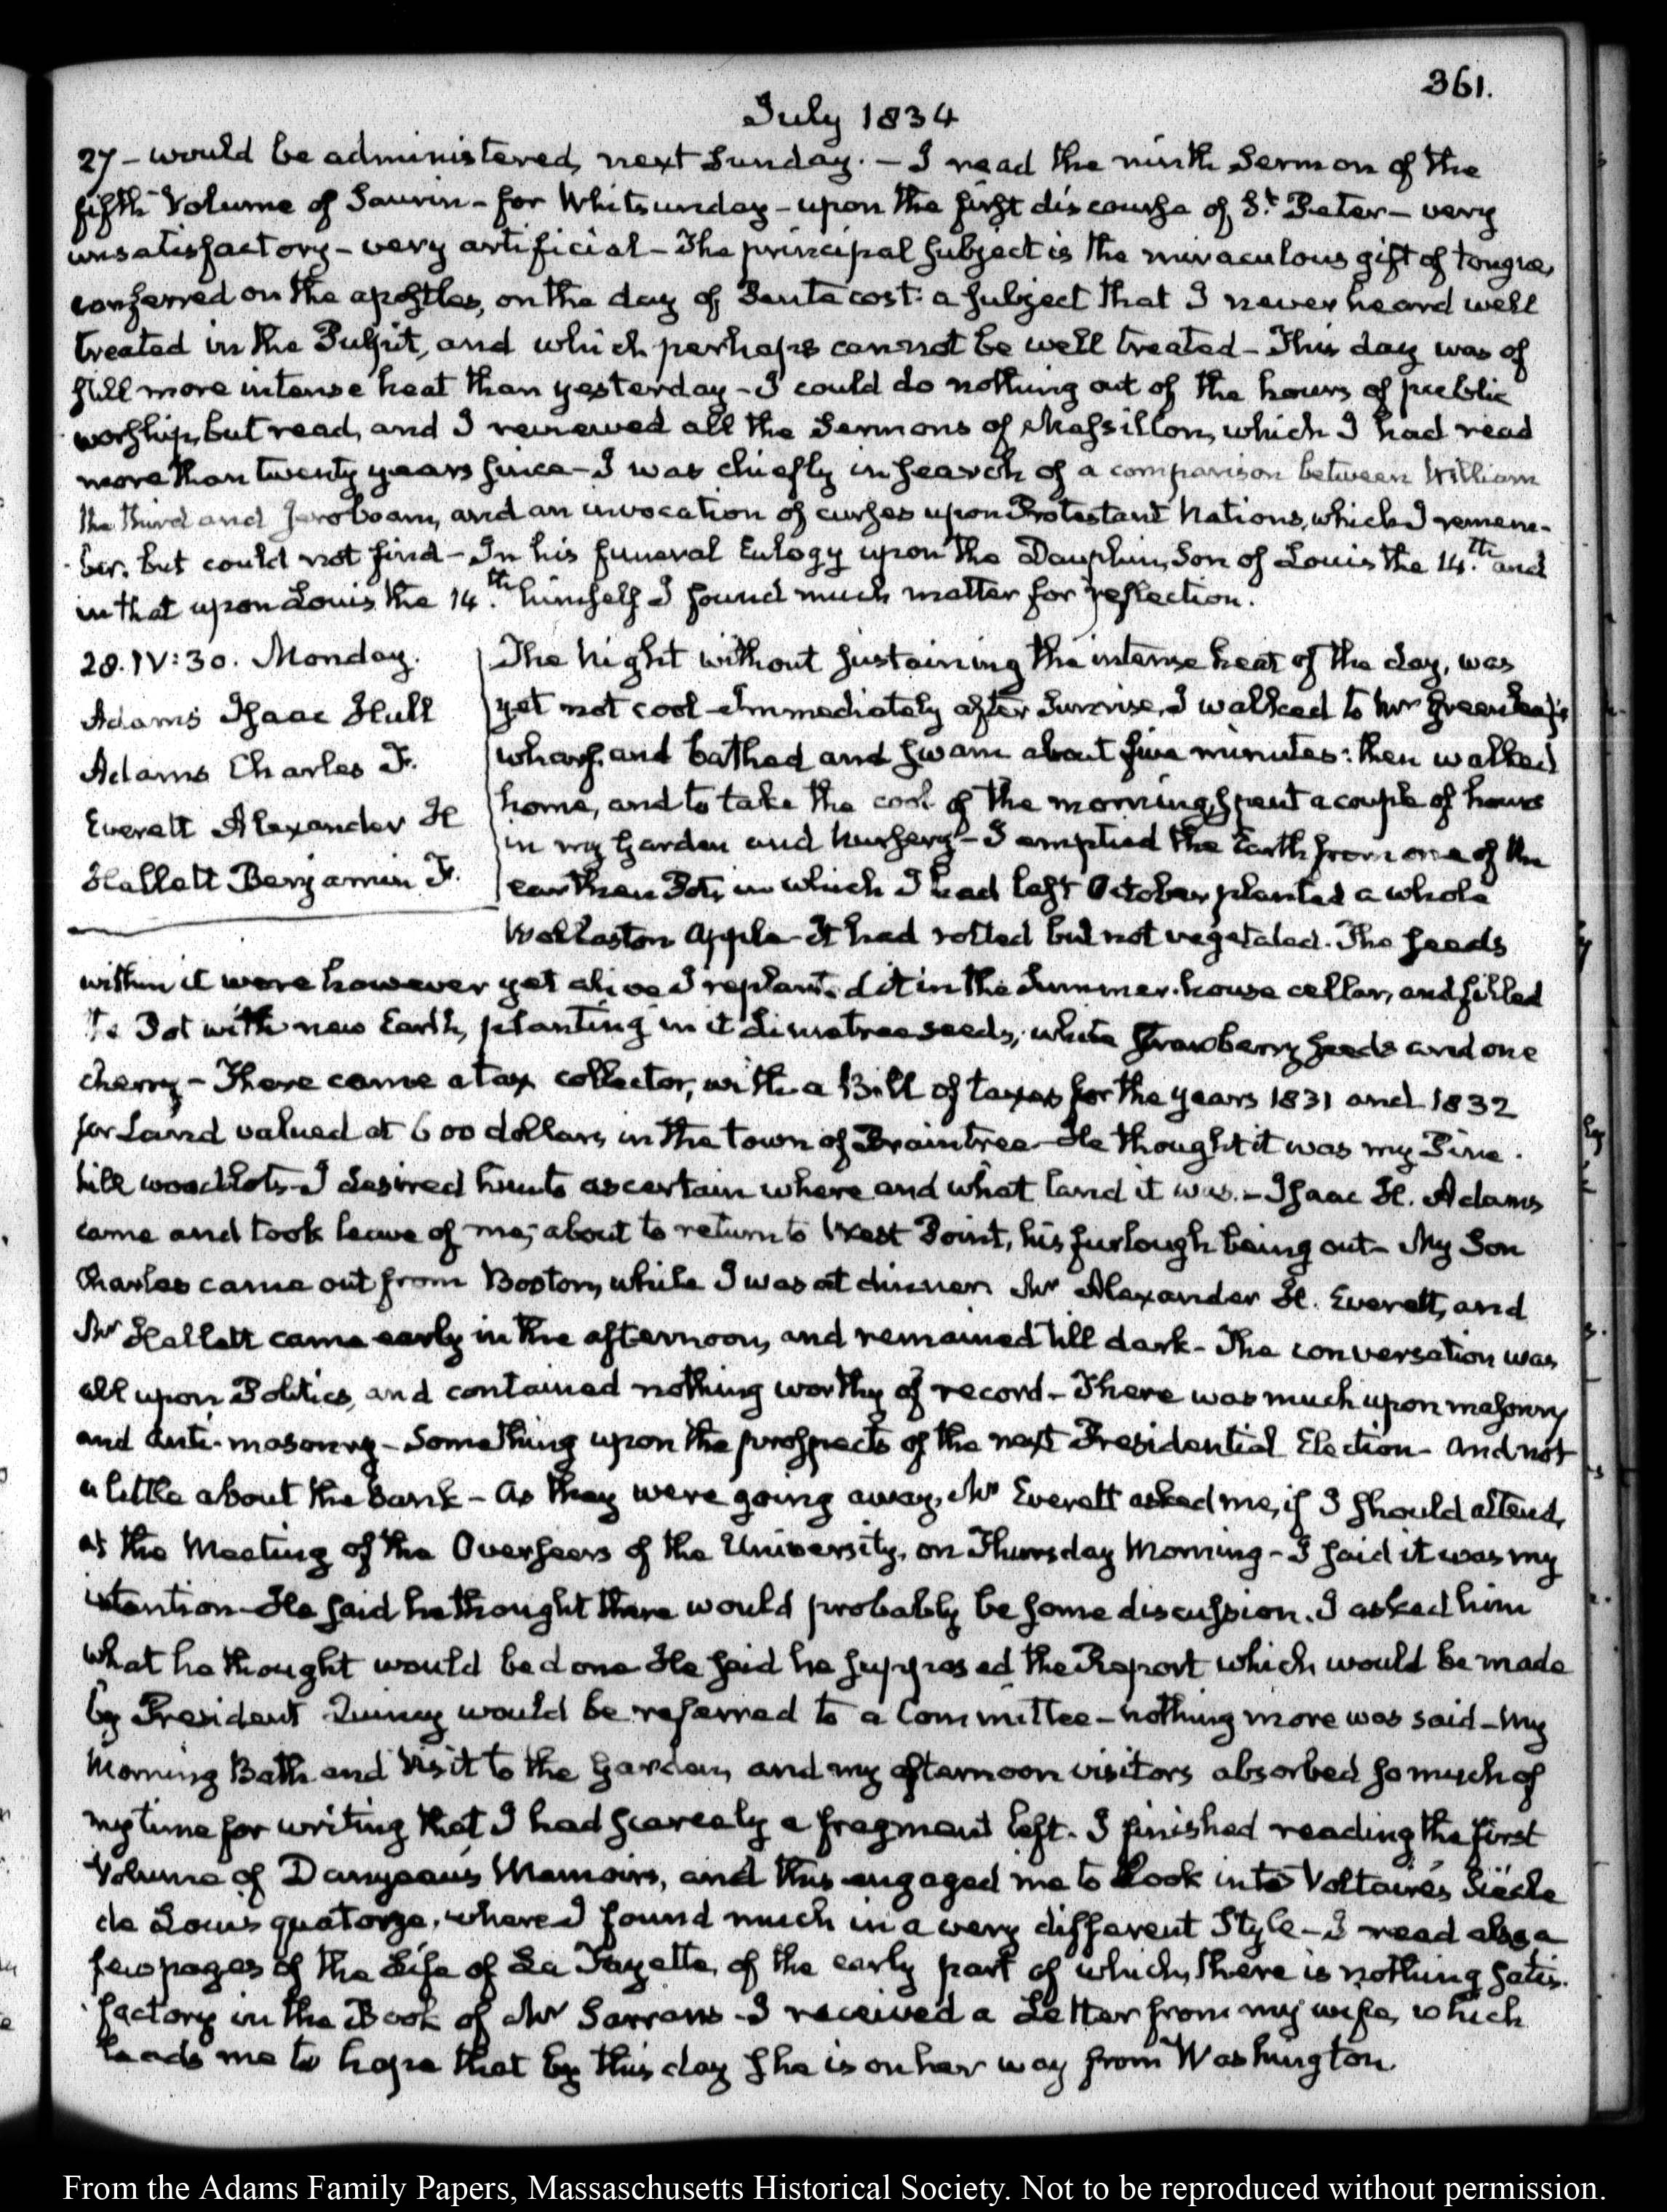 361.
July 1834
27 – would be administered, next Sunday. – I read the ninth Sermon of the
fifth Volume of Saurin – for Whitsunday – upon the first discourse of St. Peter – very
unsatisfactory – very artificial – The principal subject is the miraculous gift of tongues,
conferred on the apostles, on the day of Pentecost: a subject that I never heard well
treated in the Pulpit, and which perhaps cannot be well treated – This day was of
still more intense heat than yesterday – I could do nothing out of the hours of public
worship, but read, and I reviewed all the Sermons of Massillon, which I had read
more than twenty years since – I was chiefly in search of a comparison between William
the third and Jeroboam, and an invocation of curses upon Protestant Nations, which I remem-
ber, but could not find – In his funeral Eulogy upon the Dauphin, Son of Louis the 14.th and
in that upon Louis the 14.th himself I found much matter for reflection.
28. IV:30. Monday.
Adams Isaac Hull
Adams Charles F.
Everett Alexander H
Hallett Benjamin F.
The Night without sustaining the intense heat of the day, was
yet not cool – Immediately after Sunrise, I walked to Mr Greenleaf's
wharf, and bathed and swam about five minutes: then walked
home, and to take the cool of the morning, spent a couple of hours
in my Garden and Nursery – I emptied the Earth from one of the
earthen Pots, in which I had last October planted a whole
Wollaston Apple – It had rotted but not vegetated. The seeds
within it were however yet alive I replanted it in the Summer-house cellar, and filled
the Pot with new Earth, planting in it Limetree seeds, white Strawberry seeds and one
cherry – There came a tax collector, with a Bill of taxes for the years 1831 and 1832
for Land valued at 600 dollars, in the town of Braintree – He thought it was my Pine-
hill woodlots – I desired him to ascertain where and what land it was. – Isaac H. Adams
came and took leave of me; about to return to West Point, his furlough being out – My Son
Charles came out from Boston, while I was at dinner. Mr Alexander H. Everett, and
Mr Hallett came early in the afternoon, and remained till dark – The conversation was
all upon Politics, and contained nothing worthy of record – There was much upon masonry
and anti-masonry – Something upon the prospects of the next Presidential Election – and not
a little about the bank – As they were going away, Mr Everett asked me, if I should attend,
at the Meeting of the Overseers of the University, on Thursday Morning – I said it was my
intention – He said he thought there would probably be some discussion. I asked him
what he thought would be done He said he supposed the Report which would be made
by President Quincy would be referred to a Committee – nothing more was said – My
Morning Bath and visit to the Garden, and my afternoon visitors absorbed so much of
my time for writing that I had scarcely a fragment left. I finished reading the first
Volume of Dangeau's Memoirs, and this engaged me to look into Voltaire's Siécle
de Louis quatorze, where I found much in a very different Style – I read also a
few pages of the Life of La Fayette, of the early part of which, there is nothing satis-
factory in the Book of Mr Sarrans – I received a Letter from my wife, which
leads me to hope that by this day she is on her way from Washington
From the Adams Family Papers, Massachusetts Historical Society. Not to be reproduced without permission.